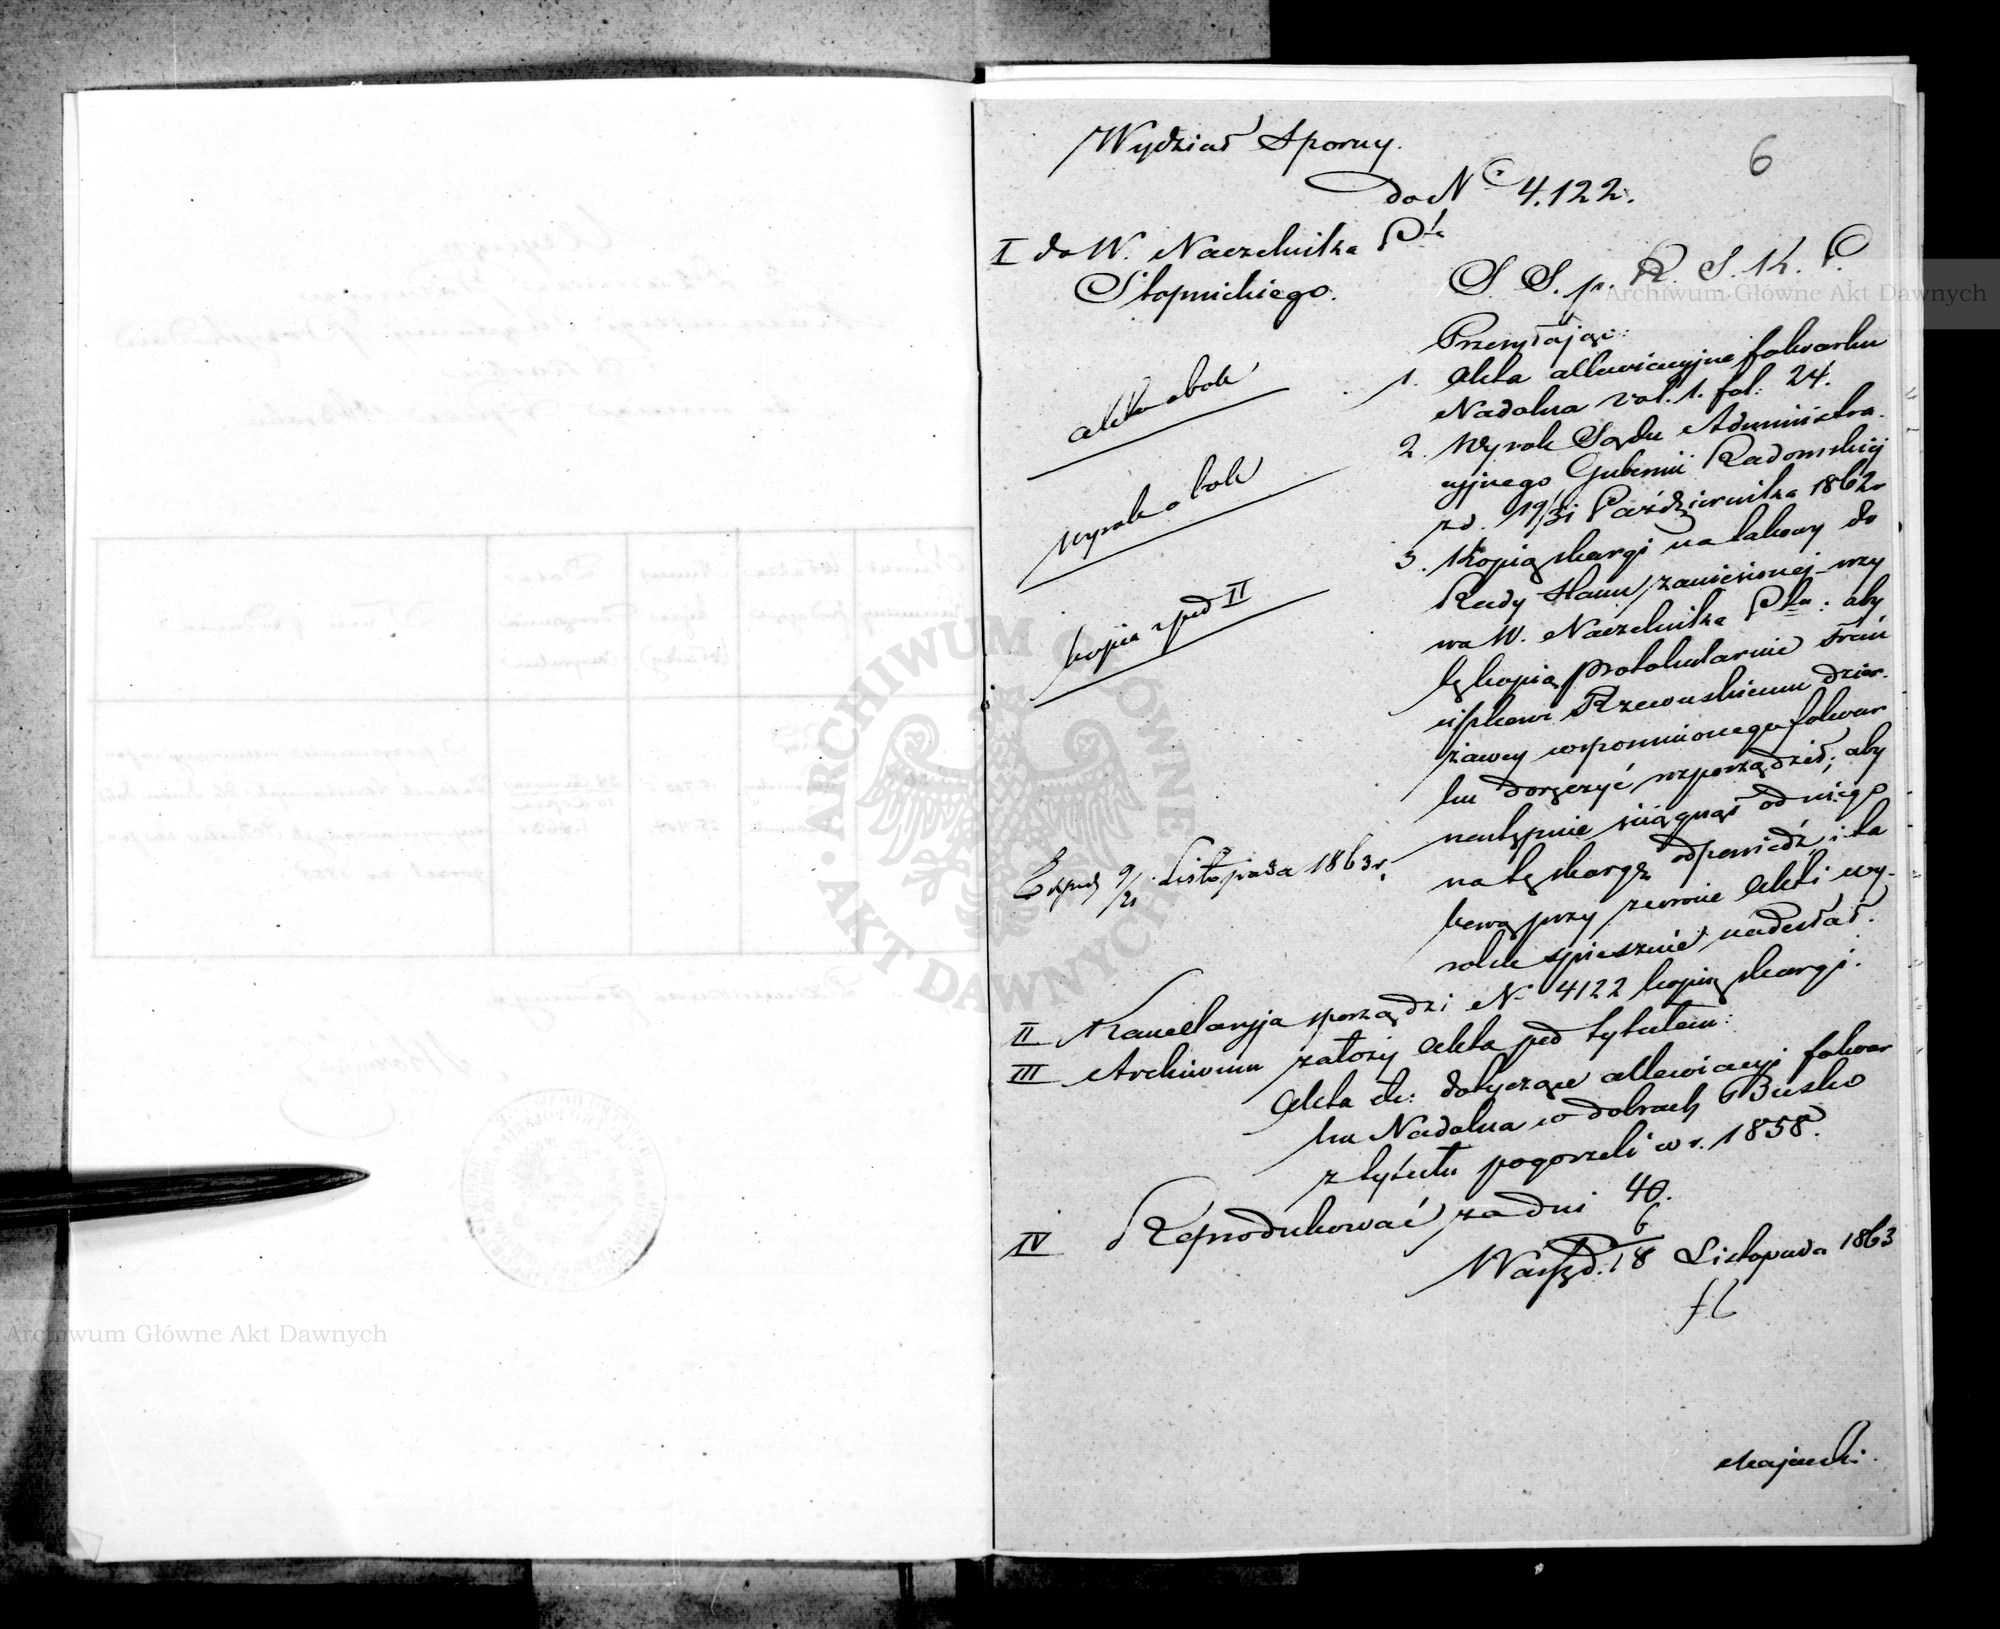 6
Wydział Sporny.
do N° 4.122.
I do W. Naczelnika Ptu
Stopnickiego.
S. S. p. R. S. K. P.
Przesyłając:
akta obok
1. Akta allewiacyjne folwarku
Nadolna vol. 1. fol: 24.
wyrok obok
2. Wyrok Sądu Administra-
cyjnego Gubernii Radomskiej
z d. 19/31 Października 1862 r
kopia z pod II
3. Kopią skargi na takowy do
Rady Stanu zaniesionej – wzy
wa W. Naczelnika Ptu: aby
tę kopią protokularnie Fran
ciszkowi Rzewuskiemu dzier-
żawcy wspomnionego folwar
ku doręczyć rozporządził; aby
następnie ściągnął od niego
na tę skargę odpowiedź i ta
kową przy zwrocie Akt i wy-
roku spiesznie nadesłał.
Exped 9/21 Listopada 1863 r.
II Kancellaryja sporządzi N 4122 kopią skargi.
III Archiwum założy Akta pod tytułem:
Akta tt: dotyczące allewiacyi folwar
ku Nadolna w dobrach Busko
z tytułu pogorzeli w r. 1858.
IV Reprodukować za dni 40.
Warsz d. 6/18 Listopada 1863
Archiwum Główne Akt Dawnych
Archiwum Główne Akt Dawnych
ARCHIWUM GŁÓWNE AKT DAWNYCH